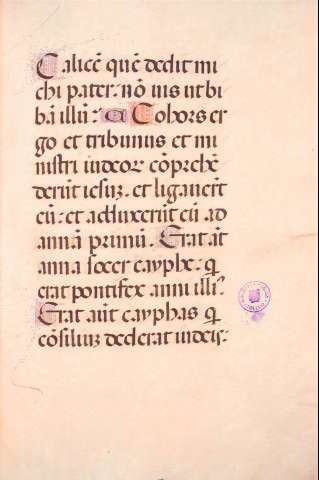 Calicē quē dedit mi
chi pater: nō uis ut bi
bā illū: C Cohors er
go et tribunus et mi
nistri iudeoꝝ cōprehē
derūt iesuȝ. et ligauerūt
eū: et adduxerūt eū ad
annā primū. Erat aūt
anna socer cayphe: q̄
erat pontifex anni illiꝰ
Erat aūt cayphas q̄
cōsiliuȝ dederat iudeis: